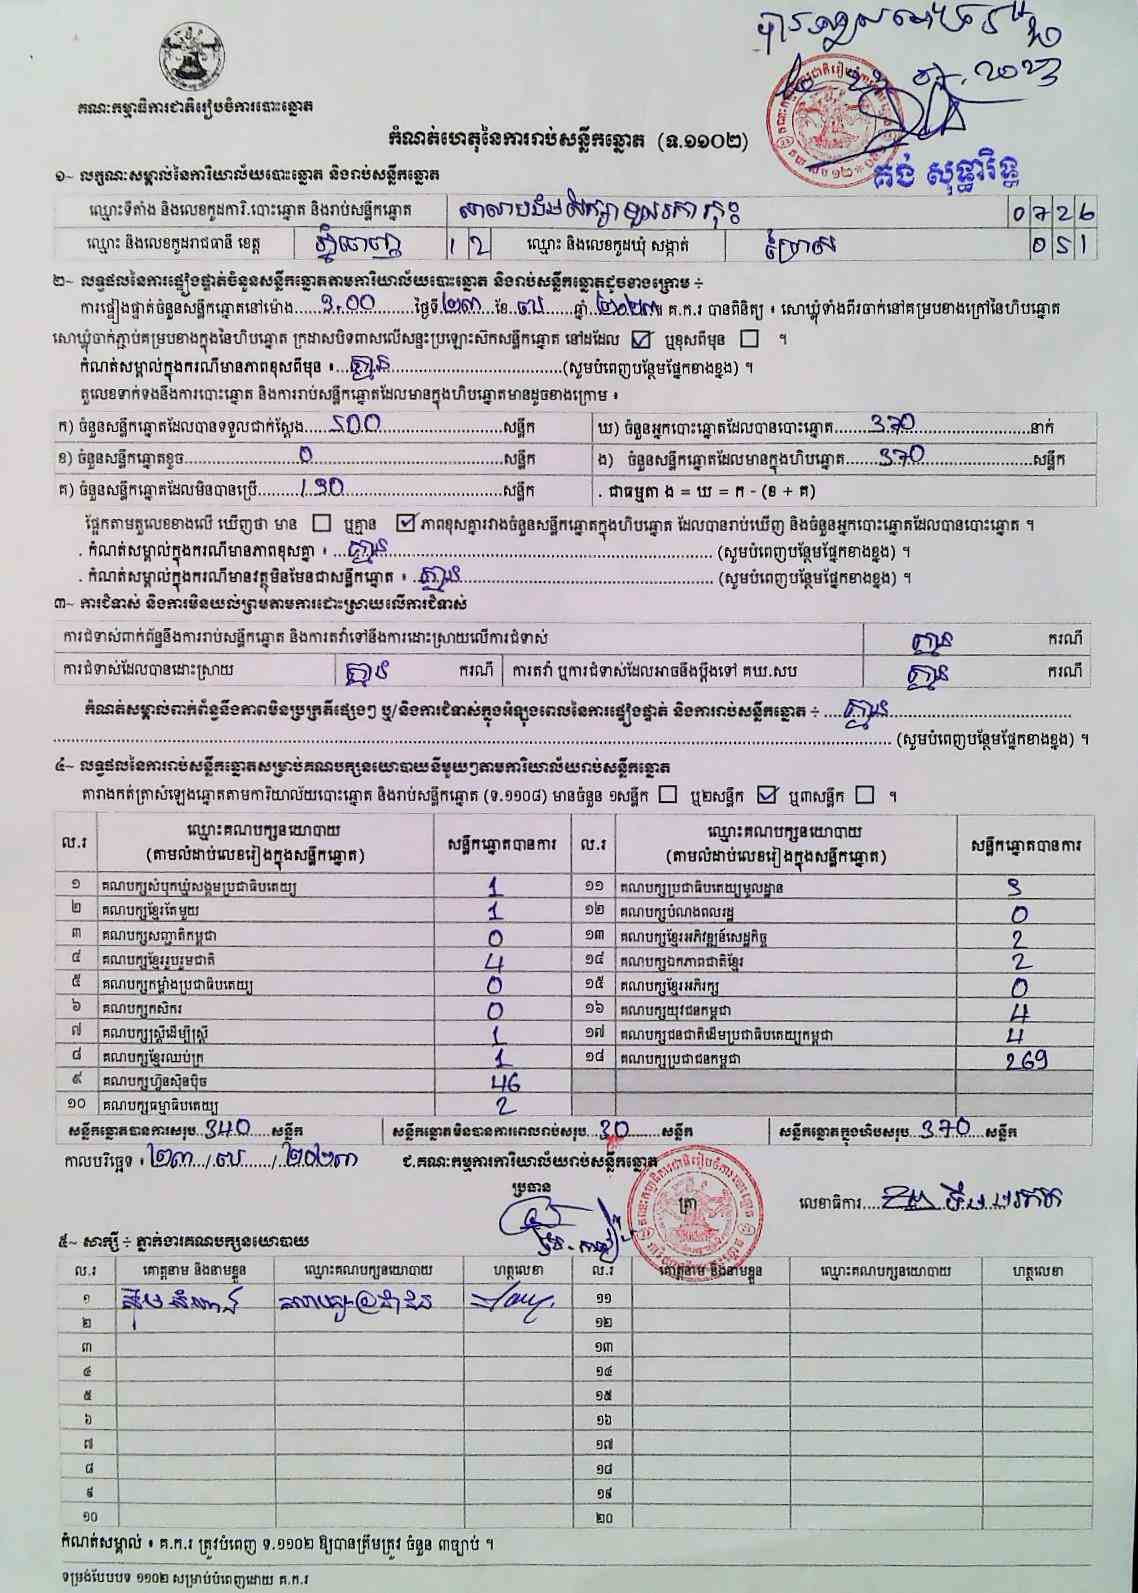 គណៈកម្មាធិការជាតិរៀបចំការបោះឆ្នោត
កំណត់ហេតុនៃការរាប់សន្លឹកឆ្នោត (ទ.១១០២)
គង់ សុទ្ធារិទ្ធ
១~ លក្ខណៈសម្គាល់នៃការិយាល័យបោះឆ្នោត និងរាប់សន្លឹកឆ្នោត
ឈ្មោះទីតាំង និងលេខកូដការិ.បោះឆ្នោត និងរាប់សន្លឹកឆ្នោត 0726
ឈ្មោះ និងលេខកូដរាជធានី ខេត្ត ភ្នំពេញ 12 ឈ្មោះ និងលេខកូដឃុំ សង្កាត់ 051
២~ លទ្ធផលនៃការផ្ទៀងផ្ទាត់ចំនួនសន្លឹកឆ្នោតតាមការិយាល័យបោះឆ្នោត និងរាប់សន្លឹកឆ្នោតដូចខាងក្រោម ÷
ការផ្ទៀងផ្ទាត់ចំនួនសន្លឹកឆ្នោតនៅម៉ោង 3:00 ថ្ងៃទី ២៣ ខែ ឆ្នាំ ២០២៣ គ.ក.រ បានពិនិត្យ ៖ សោឃ្លុំទាំងពីរចាក់នៅគម្របខាងក្រៅនៃហិបឆ្នោត
សោឃ្លុំចាក់ភ្ជាប់គម្របខាងក្នុងនៃហិបឆ្នោត ក្រដាសបិទពាសលើសន្ទះប្រឡោះស៊កសន្លឹកឆ្នោត នៅដដែល ☑ ឬខុសពីមុន ☐ ។
កំណត់សម្គាល់ក្នុងករណីមានភាពខុសពីមុន ៖ គ្មាន (សូមបំពេញបន្ថែមផ្នែកខាងខ្នង) ។
តួលេខទាក់ទងនឹងការបោះឆ្នោត និងការរាប់សន្លឹកឆ្នោតដែលមានក្នុងហិបឆ្នោតមានដូចខាងក្រោម ៖
ក) ចំនួនសន្លឹកឆ្នោតដែលបានទទួលជាក់ស្តែង 500 សន្លឹក ឃ) ចំនួនអ្នកបោះឆ្នោតដែលបានបោះឆ្នោត 370 នាក់
ខ) ចំនួនសន្លឹកឆ្នោតខូច 0 សន្លឹក ង) ចំនួនសន្លឹកឆ្នោតដែលមានក្នុងហិបឆ្នោត 370 សន្លឹក
គ) ចំនួនសន្លឹកឆ្នោតដែលមិនបានប្រើ 130 សន្លឹក . ជាធម្មតា ង = ឃ = ក - (ខ + គ)
ផ្អែកតាមតួលេខខាងលើ ឃើញថា មាន ☐ ឬគ្មាន ☑ ភាពខុសគ្នារវាងចំនួនសន្លឹកឆ្នោតក្នុងហិបឆ្នោត ដែលបានរាប់ឃើញ និងចំនួនអ្នកបោះឆ្នោតដែលបានបោះឆ្នោត ។
. កំណត់សម្គាល់ក្នុងករណីមានភាពខុសគ្នា ៖ គ្មាន (សូមបំពេញបន្ថែមផ្នែកខាងខ្នង) ។
. កំណត់សម្គាល់ក្នុងករណីមានវត្ថុមិនមែនជាសន្លឹកឆ្នោត ៖ គ្មាន (សូមបំពេញបន្ថែមផ្នែកខាងខ្នង) ។
៣~ ការជំទាស់ និងការមិនយល់ព្រមតាមការដោះស្រាយលើការជំទាស់
ការជំទាស់ពាក់ព័ន្ធនឹងការរាប់សន្លឹកឆ្នោត និងការតវ៉ាទៅនឹងការដោះស្រាយលើការជំទាស់ គ្មាន ករណី
ការជំទាស់ដែលបានដោះស្រាយ គ្មាន ករណី ការតវ៉ា ឬការជំទាស់ដែលអាចនឹងប្តឹងទៅ គឃ.សប គ្មាន ករណី
កំណត់សម្គាល់ពាក់ព័ន្ធនឹងភាពមិនប្រក្រតីផ្សេងៗ ឬ/និងការជំទាស់ក្នុងអំឡុងពេលនៃការផ្ទៀងផ្ទាត់ និងការរាប់សន្លឹកឆ្នោត ÷ គ្មាន
(សូមបំពេញបន្ថែមផ្នែកខាងខ្នង) ។
៤~ លទ្ធផលនៃការរាប់សន្លឹកឆ្នោតសម្រាប់គណបក្សនយោបាយនីមួយៗតាមការិយាល័យរាប់សន្លឹកឆ្នោត
តារាងកត់ត្រាសំឡេងឆ្នោតតាមការិយាល័យបោះឆ្នោត និងរាប់សន្លឹកឆ្នោត (ទ.១១០៨) មានចំនួន ១សន្លឹក ☐ ឬ២សន្លឹក ☑ ឬ៣សន្លឹក ☐ ។
ល.រ ឈ្មោះគណបក្សនយោបាយ (តាមលំដាប់លេខរៀងក្នុងសន្លឹកឆ្នោត) សន្លឹកឆ្នោតបានការ ល.រ ឈ្មោះគណបក្សនយោបាយ (តាមលំដាប់លេខរៀងក្នុងសន្លឹកឆ្នោត) សន្លឹកឆ្នោតបានការ
១ គណបក្សសំបុកឃ្មុំសង្គមប្រជាធិបតេយ្យ 1 ១១ គណបក្សប្រជាធិបតេយ្យមូលដ្ឋាន 3
២ គណបក្សខ្មែរតែមួយ 1 ១២ គណបក្សបំណងពលរដ្ឋ 0
៣ គណបក្សសញ្ជាតិកម្ពុជា 0 ១៣ គណបក្សខ្មែរអភិវឌ្ឍន៍សេដ្ឋកិច្ច 2
៤ គណបក្សខ្មែររួបរួមជាតិ 4 ១៤ គណបក្សឯកភាពជាតិខ្មែរ 2
៥ គណបក្សកម្លាំងប្រជាធិបតេយ្យ 0 ១៥ គណបក្សខ្មែរអភិរក្ស 0
៦ គណបក្សកសិករ 0 ១៦ គណបក្សយុវជនកម្ពុជា 4
៧ គណបក្សស្រ្តីដើម្បីស្រ្តី 1 ១៧ គណបក្សជនជាតិដើមប្រជាធិបតេយ្យកម្ពុជា 4
៨ គណបក្សខ្មែរឈប់ក្រ 1 ១៨ គណបក្សប្រជាជនកម្ពុជា 269
៩ គណបក្សហ៊្វុនស៊ិនប៉ិច 46
១០ គណបក្សធម្មាធិបតេយ្យ 2
សន្លឹកឆ្នោតបានការសរុប 340 សន្លឹក សន្លឹកឆ្នោតមិនបានការពេលរាប់សរុប 30 សន្លឹក សន្លឹកឆ្នោតក្នុងហិបសរុប 370 សន្លឹក
កាលបរិច្ឆេទ ៖ ២៣ / / ២០២៣ ជ.គណៈកម្មការការិយាល័យរាប់សន្លឹកឆ្នោត
ប្រធាន ត្រា លេខាធិការ
៥~ សាក្សី ÷ ភ្នាក់ងារគណបក្សនយោបាយ
ល.រ គោត្តនាម និងនាមខ្លួន ឈ្មោះគណបក្សនយោបាយ ហត្ថលេខា ល.រ គោត្តនាម និងនាមខ្លួន ឈ្មោះគណបក្សនយោបាយ ហត្ថលេខា
១ ១១
២ ១២
៣ ១៣
៤ ១៤
៥ ១៥
៦ ១៦
៧ ១៧
៨ ១៨
៩ ១៩
១០ ២០
កំណត់សម្គាល់ ៖ គ.ក.រ ត្រូវបំពេញ ទ.១១០២ ឱ្យបានត្រឹមត្រូវ ចំនួន ៣ច្បាប់ ។
ទម្រង់បែបបទ ១១០២ សម្រាប់បំពេញដោយ គ.ក.រ